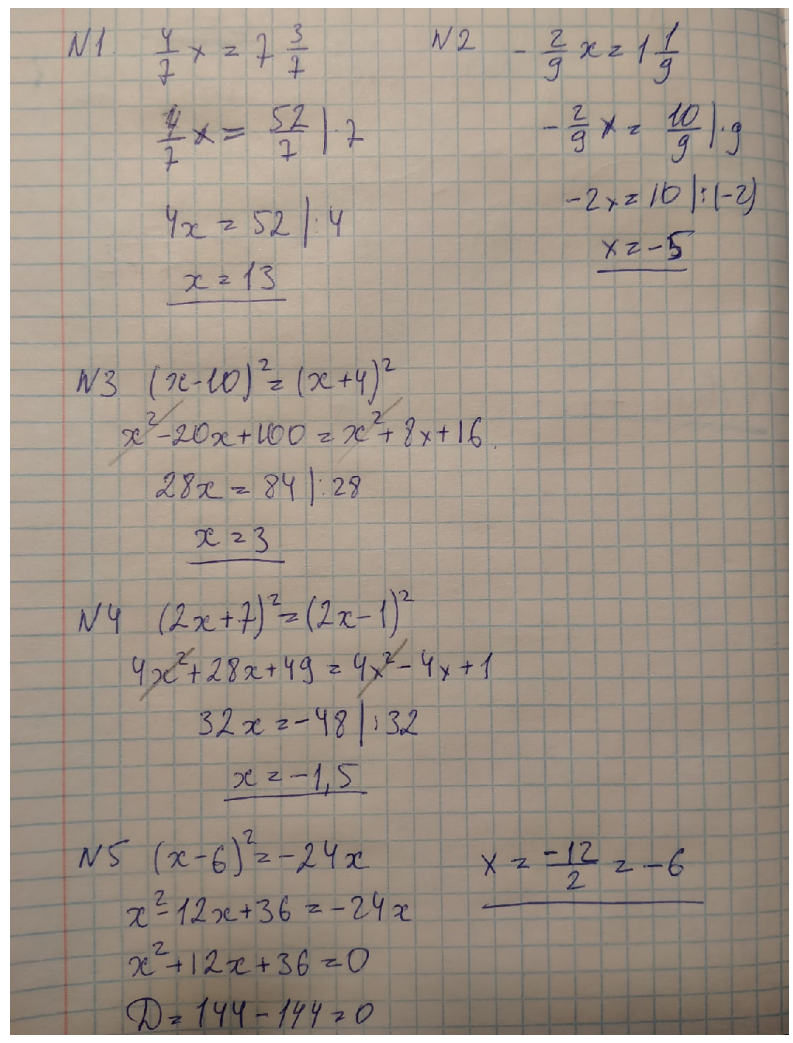 N1. 4/7 x = 7 3/7
4/7 x = 52/7 |·7
4x = 52 |:4
x = 13
N2 - 2/9 x = 1 1/9
- 2/9 x = 10/9 |·9
-2x = 10 |:(-2)
x = -5
N3 (x-10)² = (x+4)²
x² - 20x + 100 = x² + 8x + 16
28x = 84 |:28
x = 3
N4 (2x+7)² = (2x-1)²
4x² + 28x + 49 = 4x² - 4x + 1
32x = -48 |:32
x = -1,5
N5 (x-6)² = -24x
x² - 12x + 36 = -24x
x² + 12x + 36 = 0
D = 144 - 144 = 0
x = -12/2 = -6